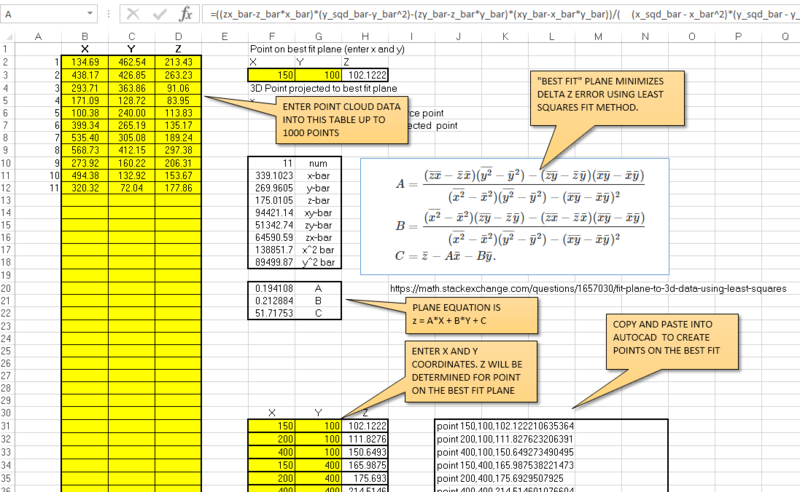 A
=((zx_bar-z_bar*x_bar)*(y_sqd_bar-y_bar^2)-(zy_bar-z_bar*y_bar)*(xy_bar-x_bar*y_bar))/( (x_sqd_bar - x_bar^2)*(y_sqd_bar - y_
A B C D E F G H I J K L M N O P Q
1 X Y Z Point on best fit plane (enter x and y)
2 1 134.69 462.54 213.43 X Y Z
3 2 438.17 426.85 263.23 150 100 102.1222
4 3 293.71 363.86 91.06 3D Point projected to best fit plane
5 4 171.09 128.72 83.95
6 5 100.38 240.00 113.83 point
7 6 399.34 265.19 135.17 point
8 7 535.40 305.08 189.24
9 8 568.73 412.15 297.38
10 9 273.92 160.22 206.31 11 num
11 10 494.38 132.92 153.67 339.1023 x-bar
12 11 320.32 72.04 177.86 269.9605 y-bar
13 175.0105 z-bar
14 94421.14 xy-bar
15 51342.74 zy-bar
16 64590.59 zx-bar
17 138851.7 x^2 bar
18 89499.87 y^2 bar
19
20 0.194108 A https://math.stackexchange.com/questions/1657030/fit-plane-to-3d-data-using-least-squares
21 0.212884 B
22 51.71753 C
23
24
25
26
27
28
29
30 X Y Z
31 150 100 102.1222 point 150,100,102.122210635364
32 200 100 111.8276 point 200,100,111.827623206391
33 400 100 150.6493 point 400,100,150.649273490495
34 150 400 165.9875 point 150,400,165.987538221473
35 200 400 175.693 point 200,400,175.6929507925
400 400 214.5146 point 400,400,214.514601076604
ENTER POINT CLOUD DATA
INTO THIS TABLE UP TO
1000 POINTS
"BEST FIT" PLANE MINIMIZES
DELTA Z ERROR USING LEAST
SQUARES FIT METHOD.
A = (z̅x̅ − z̄ x̄)(y̅²̅ − ȳ²) − (z̅y̅ − z̄ ȳ)(x̅y̅ − x̄ȳ) / (x̅²̅ − x̄²)(y̅²̅ − ȳ²) − (x̅y̅ − x̄ȳ)²
B = (x̅²̅ − x̄²)(z̅y̅ − z̄ ȳ) − (z̅x̅ − z̄ x̄)(x̅y̅ − x̄ȳ) / (x̅²̅ − x̄²)(y̅²̅ − ȳ²) − (x̅y̅ − x̄ȳ)²
C = z̄ − Ax̄ − Bȳ.
PLANE EQUATION IS
z = A*X + B*Y + C
ENTER X AND Y
COORDINATES. Z WILL BE
DETERMINED FOR POINT
ON THE BEST FIT PLANE
COPY AND PASTE INTO
AUTOCAD TO CREATE
POINTS ON THE BEST FIT